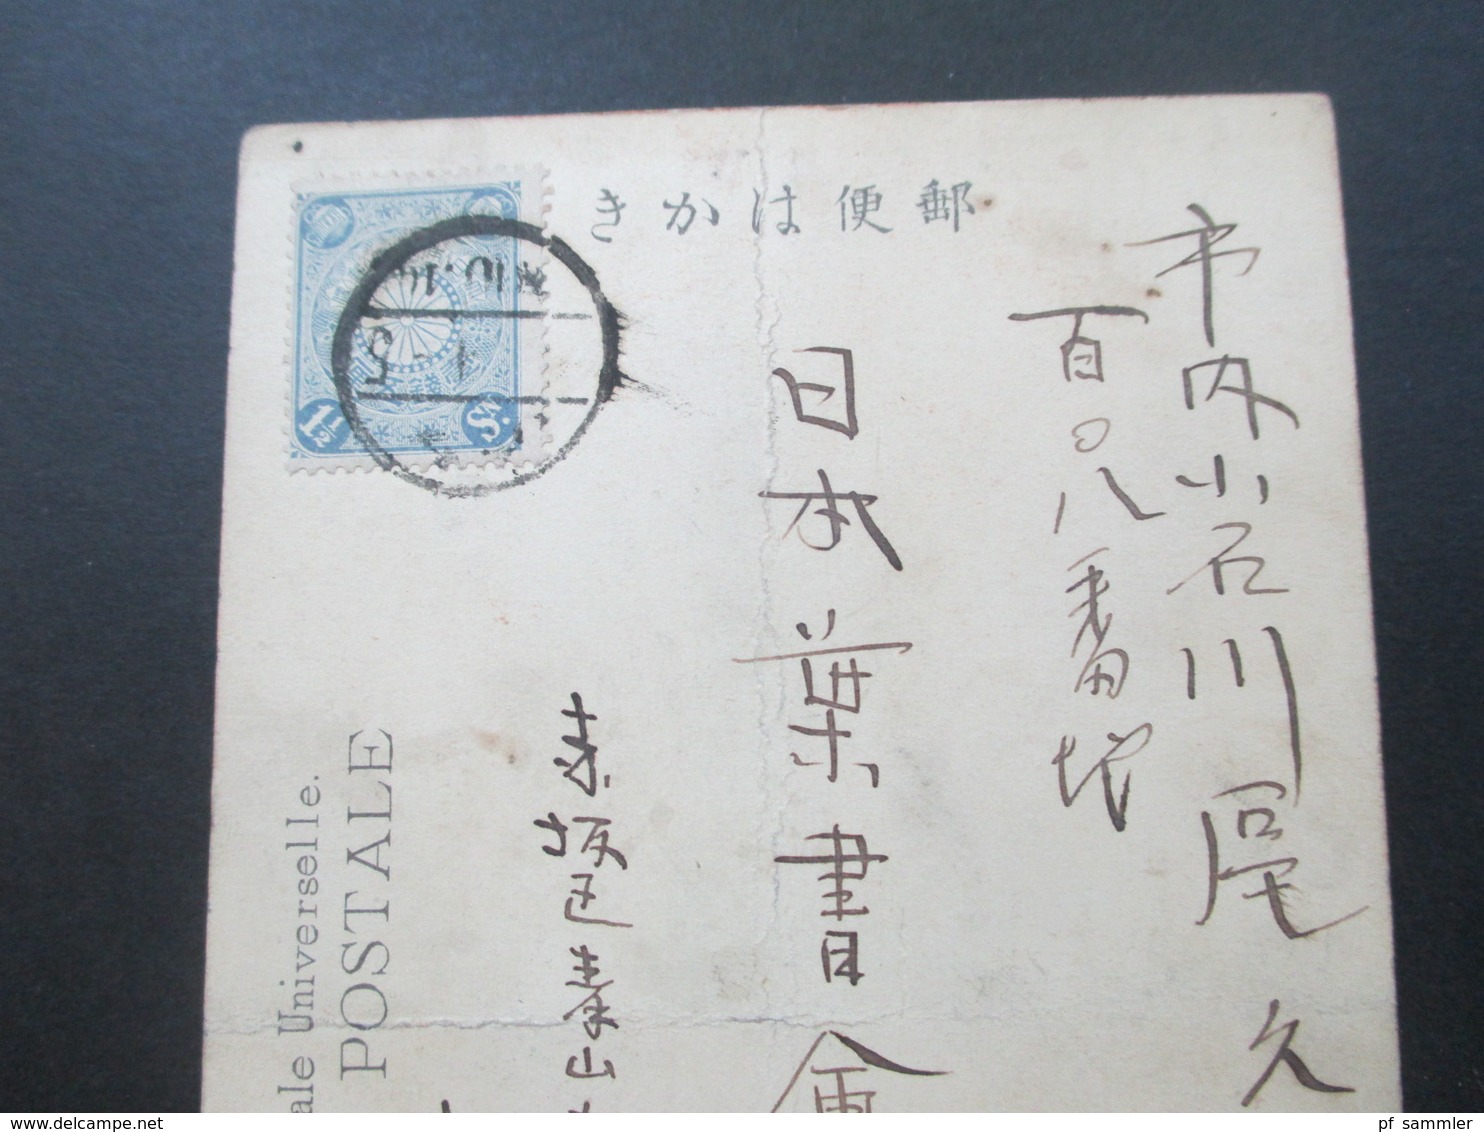 きかは便郵
市内小石川區久
百〇八番地
日本葉書會
赤坂區青山
ale Universelle.
POSTALE
1½
Sn.
delcampe.net
pf_sammler